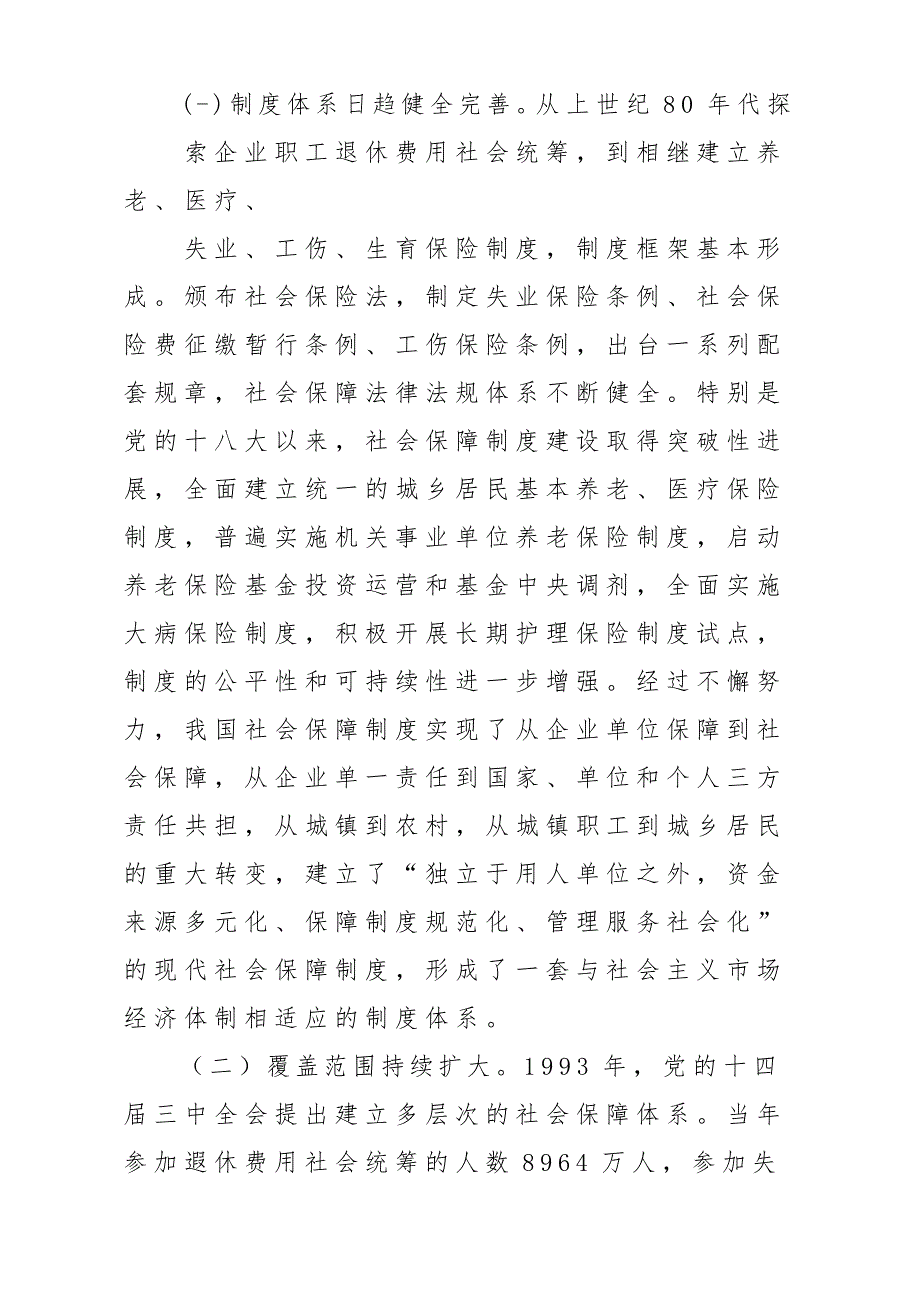 (-)制度体系日趋健全完善。从上世纪80年代探
索企业职工退休费用社会统筹，到相继建立养
老、医疗、
失业、工伤、生育保险制度，制度框架基本形
成。颁布社会保险法，制定失业保险条例、社会保
险费征缴暂行条例、工伤保险条例，出台一系列配
套规章，社会保障法律法规体系不断健全。特别是
党的十八大以来，社会保障制度建设取得突破性进
展，全面建立统一的城乡居民基本养老、医疗保险
制度，普遍实施机关事业单位养老保险制度，启动
养老保险基金投资运营和基金中央调剂，全面实施
大病保险制度，积极开展长期护理保险制度试点，
制度的公平性和可持续性进一步增强。经过不懈努
力，我国社会保障制度实现了从企业单位保障到社
会保障，从企业单一责任到国家、单位和个人三方
责任共担，从城镇到农村，从城镇职工到城乡居民
的重大转变，建立了“独立于用人单位之外，资金
来源多元化、保障制度规范化、管理服务社会化”
的现代社会保障制度，形成了一套与社会主义市场
经济体制相适应的制度体系。
（二）覆盖范围持续扩大。1993年，党的十四
届三中全会提出建立多层次的社会保障体系。当年
参加遐休费用社会统筹的人数8964万人，参加失